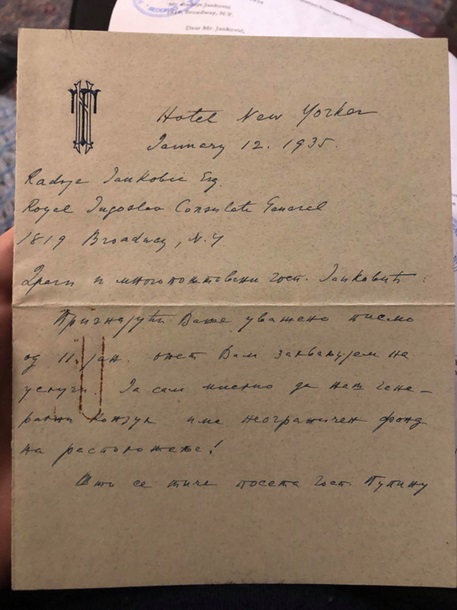 Mr. Radoje Jankovic
Broadway, N.Y.
Dear Mr. Jankovic,
Hotel New Yorker
January 12. 1935.
Radoje Jankovic Esq.
Royal Jugoslav Consulate General
1819 Broadway, N.Y
Драги и многопоштовани Госп. Јанковић:
Признајући Ваше уважено писмо
од 11. јан. опет Вам захваљујем на
услузи. Ја сам мислио да наш гене-
рални конзул има неограничен фонд
на расположењу!
Што се тиче посета Госп. Пупину